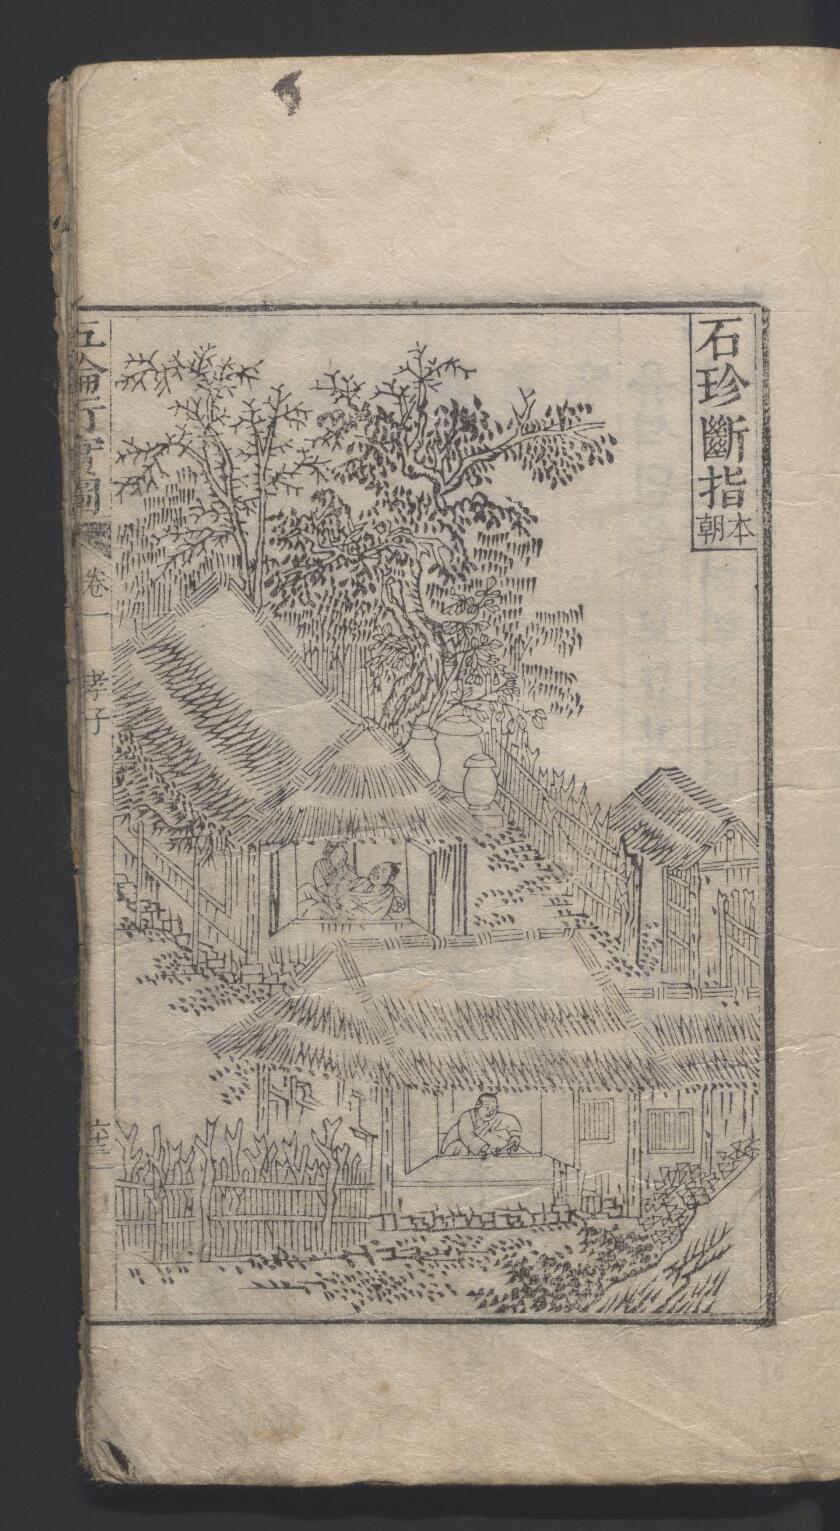 石珍斷指
本朝
五倫行實圖
卷一
孝子
六十三